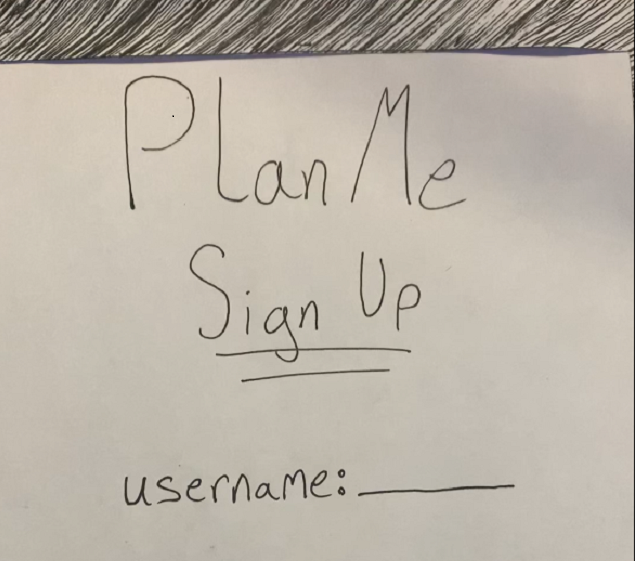 Plan Me
Sign Up
username: ______